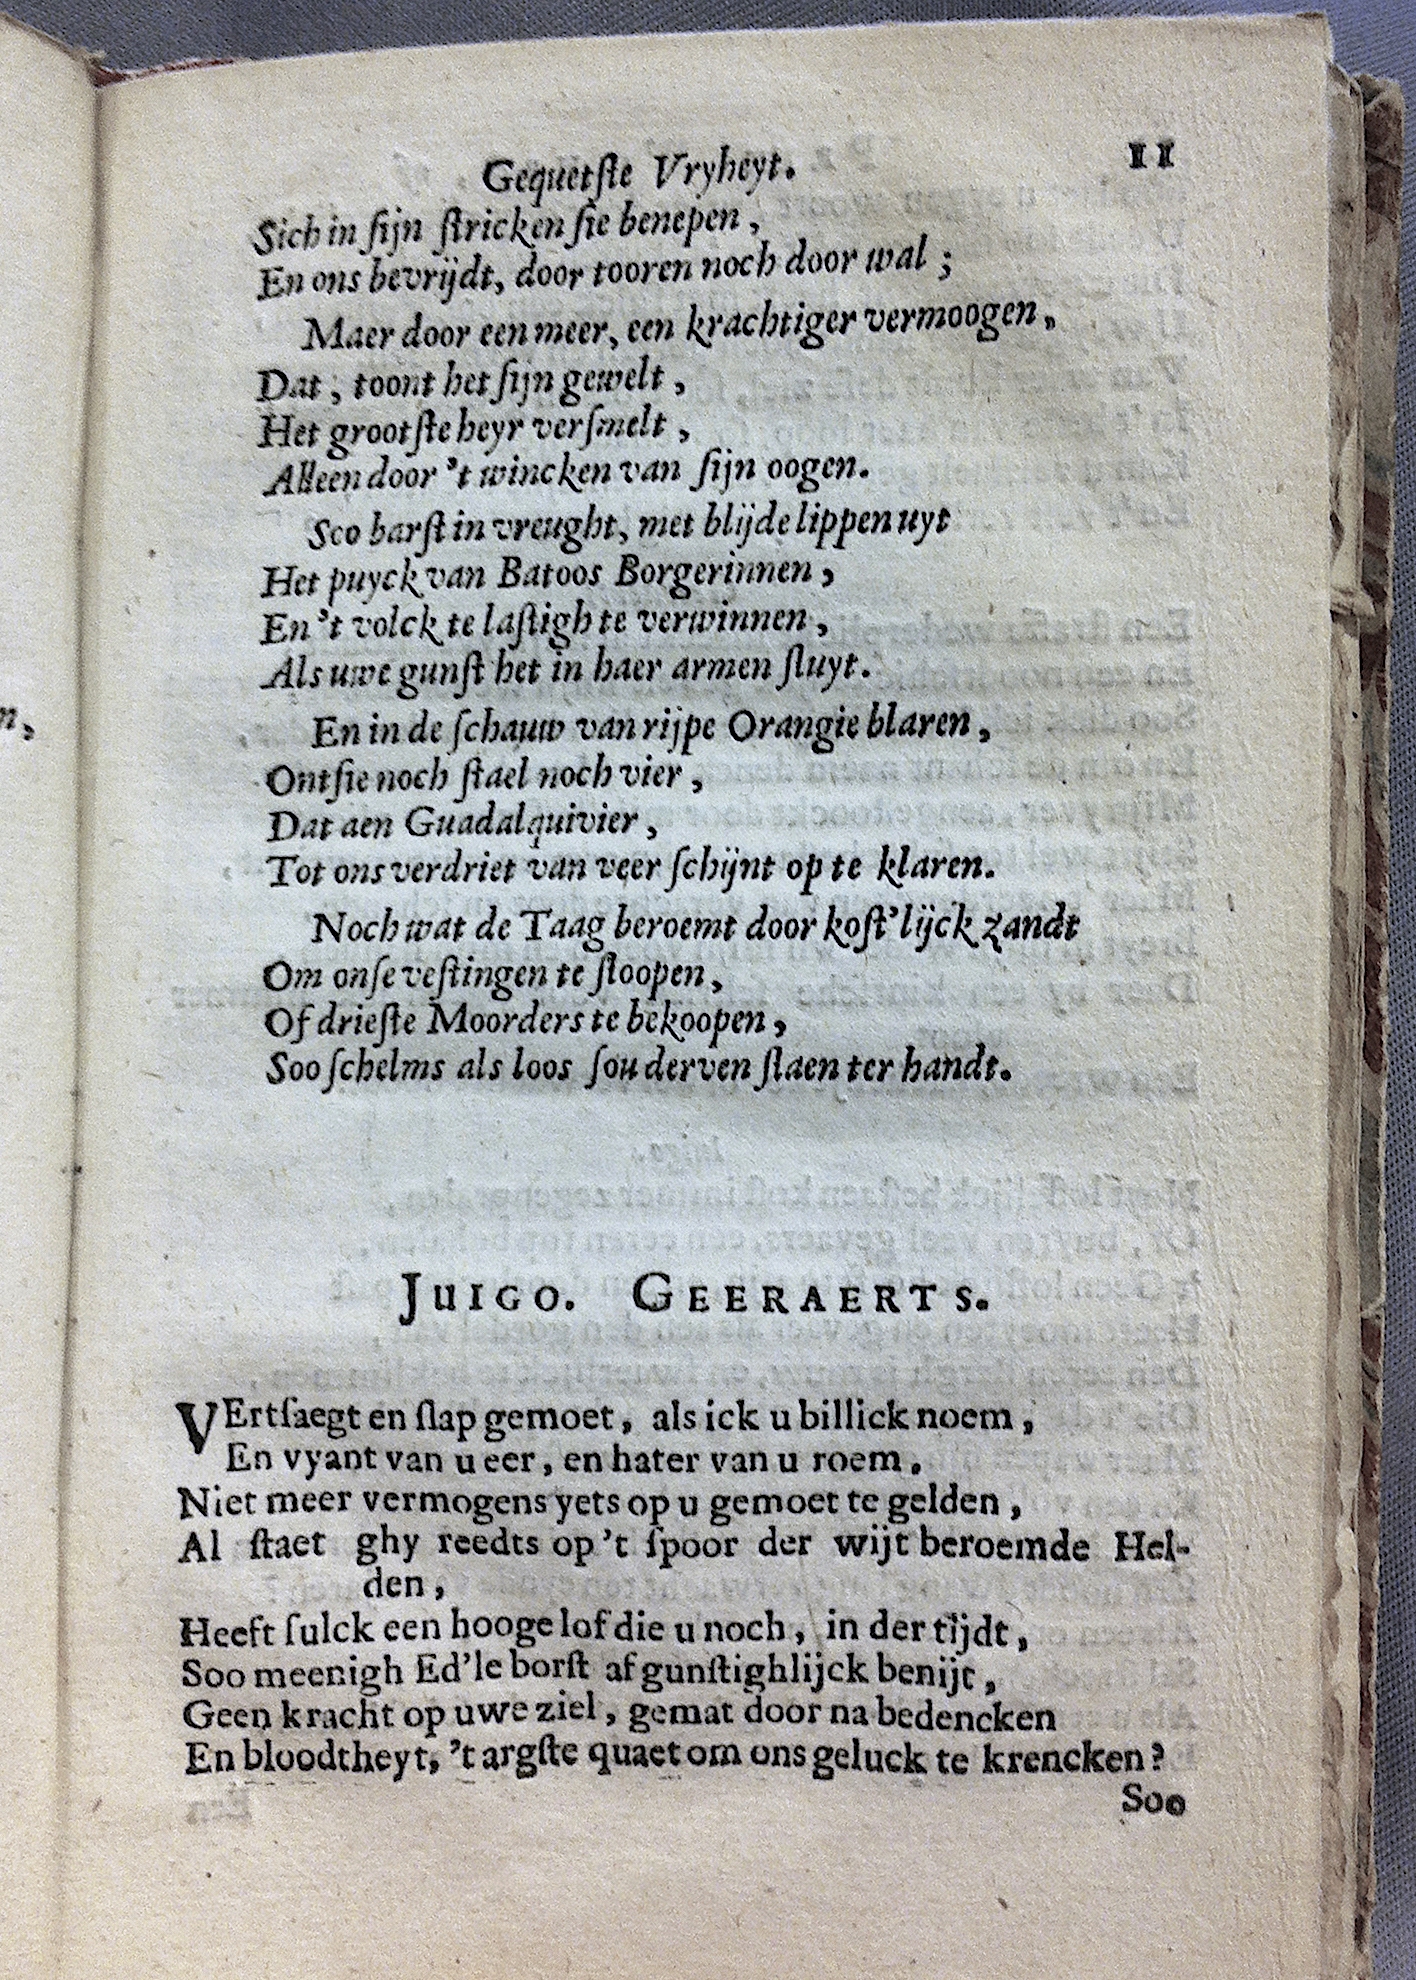 Gequetſte Vryheyt. 11
Sich in ſijn ſtricken ſie benepen,
En ons bevrijdt, door tooren noch door wal;
Maer door een meer, een krachtiger vermoogen,
Dat, toont het ſijn gewelt,
Het grootſte heyr verſmelt,
Alleen door 't wincken van ſijn oogen.
Soo barſt in vreught, met blijde lippen uyt
Het puyck van Batoos Borgerinnen,
En 't volck te laſtigh te verwinnen,
Als uwe gunſt het in haer armen ſluyt.
En in de ſchauw van rijpe Orangie blaren,
Ontſie noch ſtael noch vier,
Dat aen Guadalquivier,
Tot ons verdriet van veer ſchijnt op te klaren.
Noch wat de Taag beroemt door koſt'lijck zandt
Om onſe veſtingen te ſloopen,
Of drieſte Moorders te bekoopen,
Soo ſchelms als loos ſou derven ſlaen ter handt.
JUIGO. GEERAERTS.
VErtſaegt en ſlap gemoet, als ick u billick noem,
En vyant van u eer, en hater van u roem.
Niet meer vermogens yets op u gemoet te gelden,
Al ſtaet ghy reedts op 't ſpoor der wijt beroemde Hel-
den,
Heeft ſulck een hooge lof die u noch, in der tijdt,
Soo meenigh Ed'le borſt afgunſtighlijck benijt,
Geen kracht op uwe ziel, gemat door na bedencken
En bloodtheyt, 't argſte quaet om ons geluck te krencken?
Soo
n,